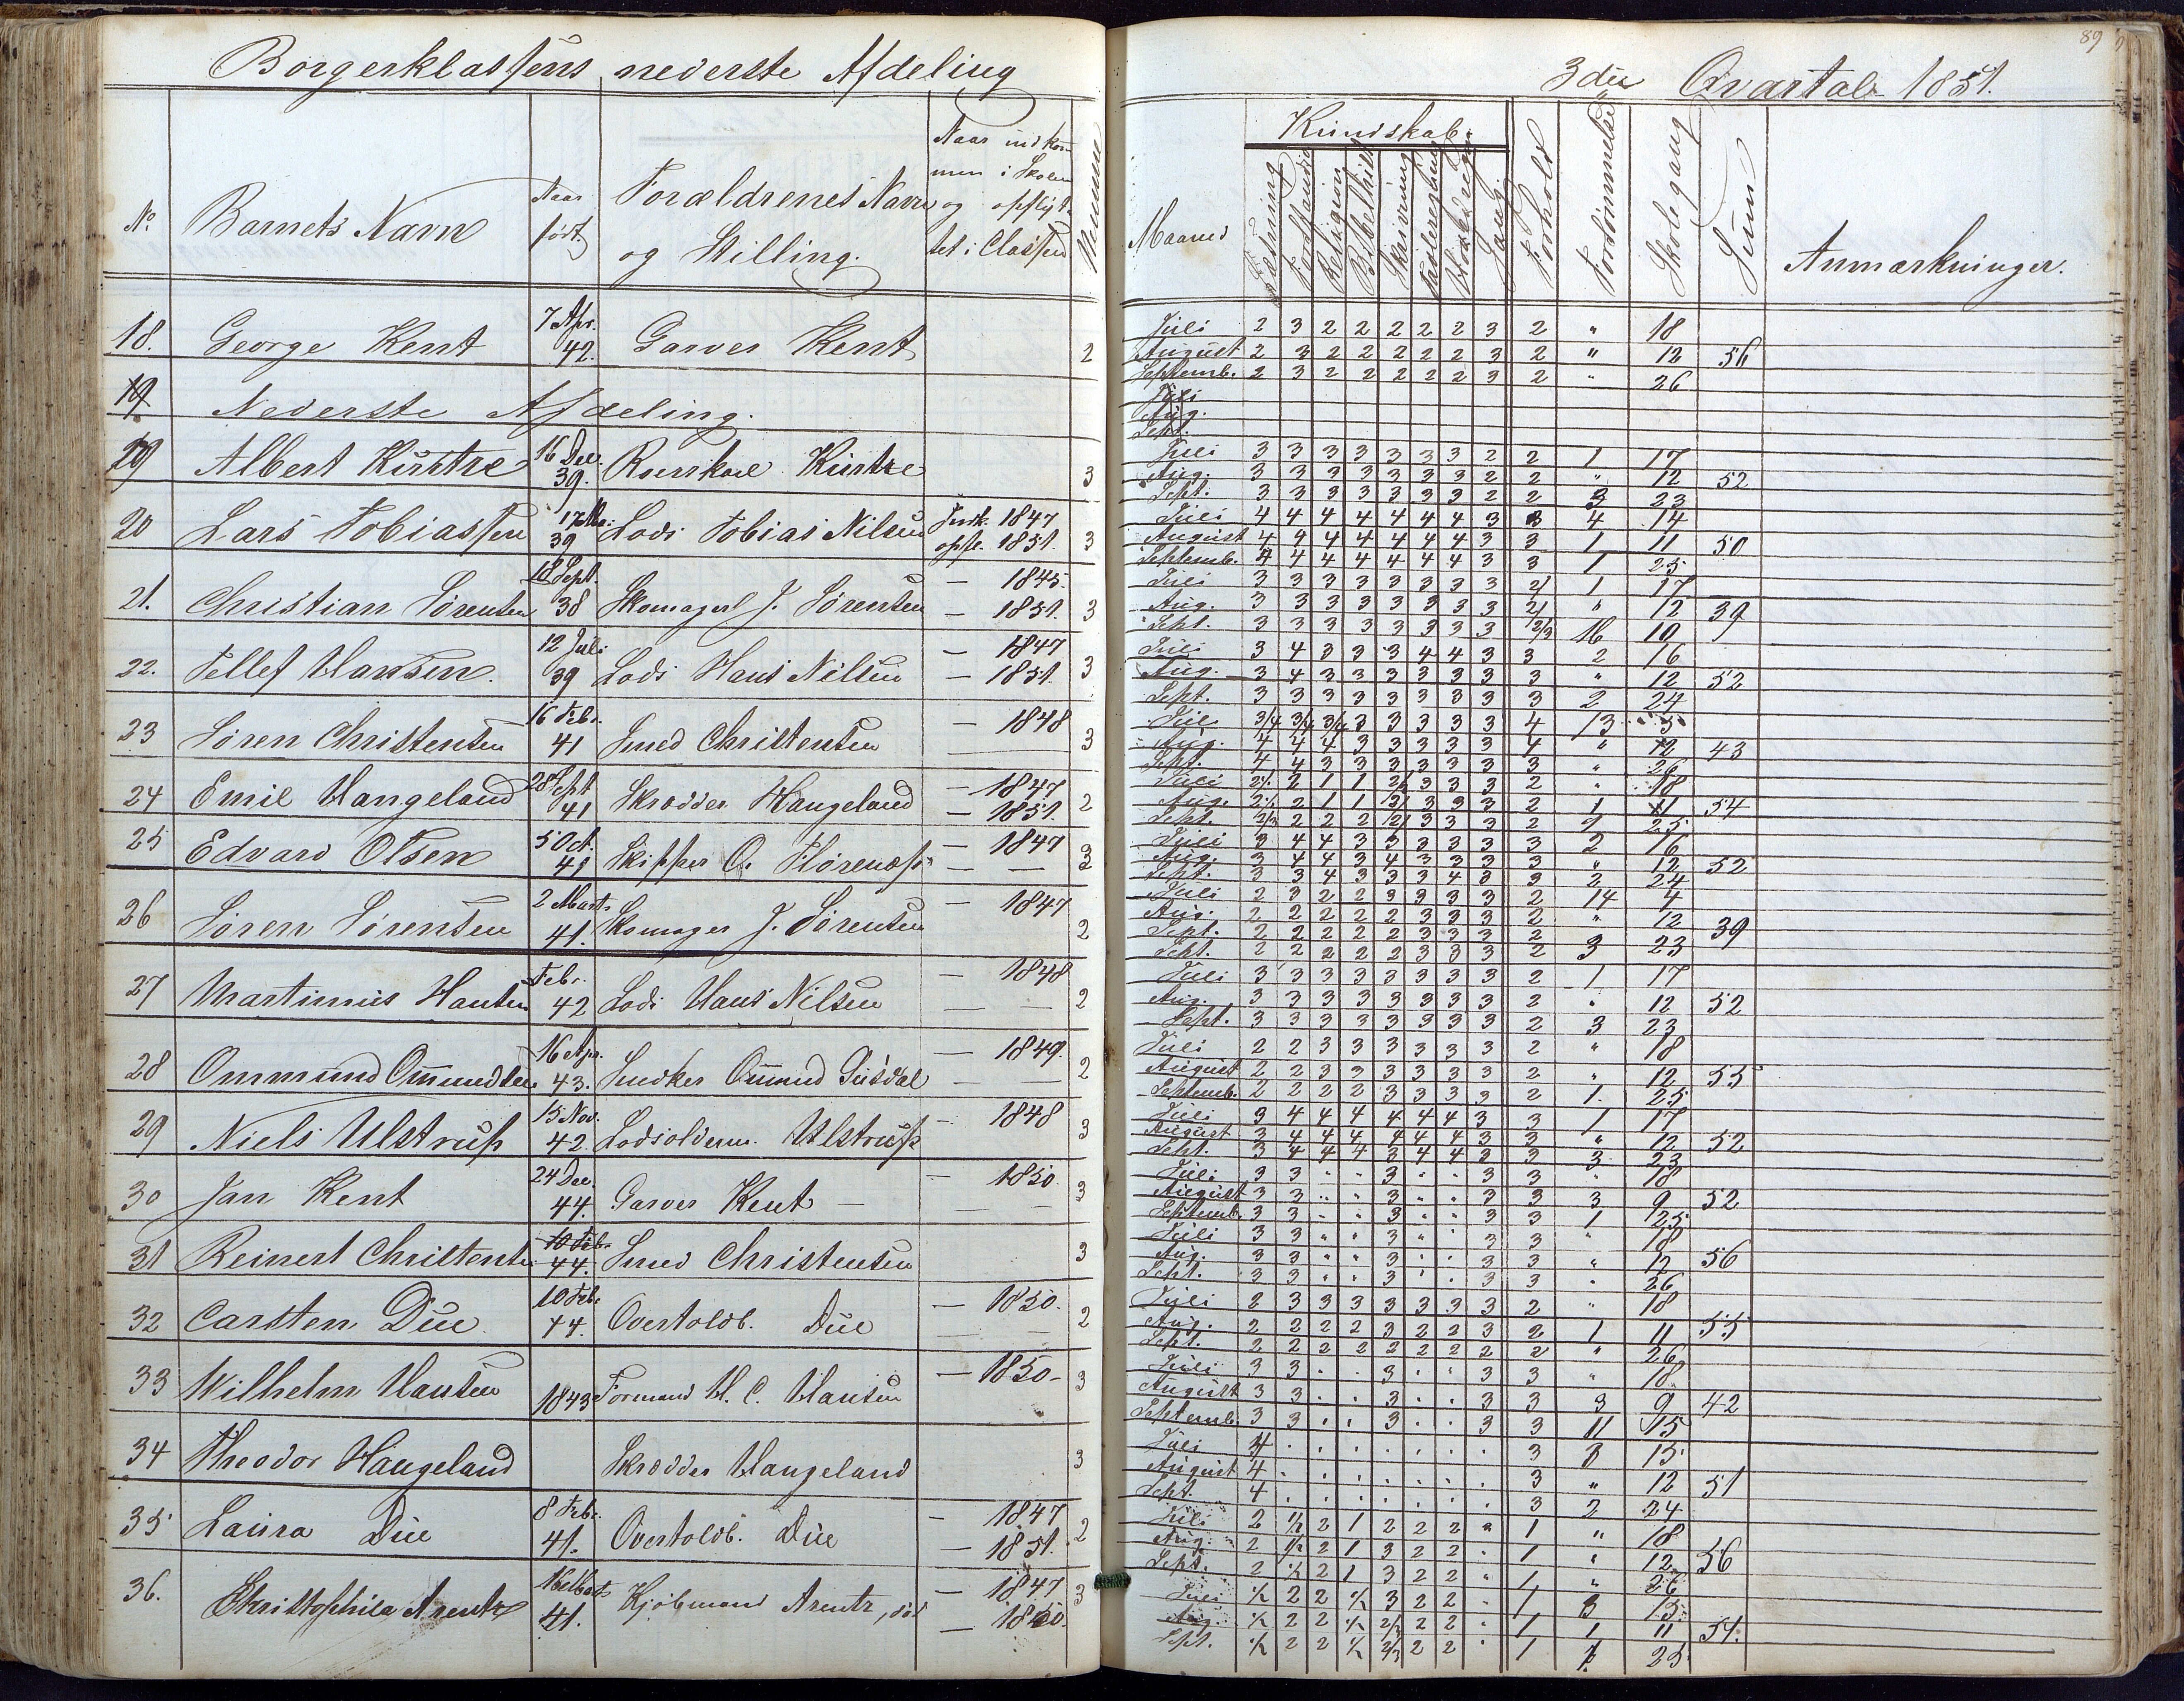 Borgerklassens nederste Afdeling
3die Qvartal 1851.
89
No. Barnets Navn Naar født. Forældrenes Navn og Stilling. Naar indkommen i Skolen og opflyttet i Classen
Maaned Kundskab. Læsning Forstand Religion Skrivning Sang. Forhold Forsømmelse Skolegang Sum Anmærkninger.
18. George Kent 7 Apr. 42. Garver Kent 2
Juli 2 3 2 2 2 2 2 3 2 " 18
August 2 3 2 2 2 2 2 3 2 " 12 56
Septemb. 2 3 2 2 2 2 2 3 2 " 26
19 Nederste Afdeling.
Juli
Aug.
Sept.
19 Albert Küstre 16 Dec. 39. Küstre 3
Juli 3 3 3 3 3 3 3 2 2 1 17
Aug. 3 3 3 3 3 3 3 2 2 " 12 52
Sept. 3 3 3 3 3 3 3 2 2 3 23
20 Lars Tobiassen 39 Lods Tobias Nilsen Indk. 1847 opfl. 1851. 3
Juli 4 4 4 4 4 4 4 3 3 4 14
August 4 4 4 4 4 4 4 3 3 1 11 50
Septemb. 4 4 4 4 4 4 4 3 3 1 25
21. Christian Sørensen 18 Sept. 38 Skomager J. Sørensen — 1845. — 1851. 3
Juli 3 3 3 3 3 3 3 3 2/ 1 17
Aug. 3 3 3 3 3 3 3 3 2/ " 12 39
Sept. 3 3 3 3 3 3 3 3 2/3 16 10
22. Tellef Hansen. 12 Juli 39 Lods Hans Nilsen — 1847 — 1851. 3
Juli 3 4 3 3 3 4 4 3 3 2 16
Aug. 3 4 3 3 3 3 3 3 3 " 12 52
Sept. 3 3 3 3 3 3 3 3 3 2 24
23 Søren Christensen 16 Febr. 41 Smed Christensen — 1848 3
Juli 3/4 3/4 3/4 3 3 3 3 3 4 13 5
Aug. 4 4 4 3 3 3 3 3 4 " 12 43
Sept. 4 4 3 3 3 3 3 3 3 " 26
24 Emil Haugeland 28 Sept 41 Skrædder Haugeland — 1847 — 1851. 2
Juli 2/ 2 1 1 2/ 3 3 3 2 " 18
Aug. 2/ 2 1 1 2/ 3 3 3 2 1 11 54
Sept. 2/3 2 2 2 2/ 3 3 3 2 1 25
25 Edvard Olsen 5 Oct. 41 Skipper O. — 1847 — — 3
Juli 3 4 4 3 3 3 3 3 3 2 16
Aug. 3 4 4 3 4 3 3 3 3 " 12 52
Sept. 3 3 4 3 3 3 4 3 3 2 24
26 Søren Sørensen 2 Marts 41. Skomager J. Sørensen — 1847 2
Juli 2 3 2 2 3 3 3 3 2 14 4
Aug. 2 2 2 2 2 3 3 3 2 " 12 39
Sept. 2 2 2 2 2 3 3 3 2
Sept. 2 2 2 2 2 3 3 3 2 3 23
27 Martinius Hansen Febr. 42 Lods Hans Nilsen — 1848 — — 2
Juli 3 3 3 3 3 3 3 3 2 1 17
Aug. 3 3 3 3 3 3 3 3 2 " 12 52
Sept. 3 3 3 3 3 3 3 3 2 3 23
28 Ommund Ommundsen 16 Apr. 43. Snedker Ommund — 1849. — — 2
Juli 2 2 3 3 3 3 3 3 2 " 18
August 2 2 3 3 3 3 3 3 2 " 12 55
Septemb. 2 2 2 2 3 3 3 3 2 1. 25
29 Niels Ulstrup 15 Nov. 42. Lodsolderm. Ulstrup — 1848 3
Juli 3 4 4 4 4 4 4 3 3 1 17
August 3 4 4 4 4 4 4 3 3 " 12 52
Sept. 3 4 4 4 3 4 4 3 3 3 23
30 Jan Kent 24 Dec. 44. Garver Kent — — 1850. — — 3
Juli 3 3 " " 3 " " 3 3 " 18
August 3 3 " " 3 " " 3 3 3 9 52
Septemb. 3 3 " " 3 " " 3 3 1 25
31 Reinert Christensen 10 Feb. 44. Smed Christensen 3
Juli 3 3 " " 3 " " 3 3 " 18
Aug. 3 3 " " 3 " " 3 3 " 12 56
Sept. 3 3 " " 3 " " 3 3 " 26
32 Carsten Due 10 Feb. 44. Overtoldb. Due — 1850. — — 2
Juli 2 3 3 3 3 3 3 3 2 " 18
Aug. 2 2 2 2 3 2 2 3 2 1 11 55
Sept. 2 2 2 2 2 2 2 2 2 " 26
33 Wilhelm Hansen 1843 Formand H. C. Hansen — 1850- 3
Juli 3 3 . . 3 . . 3 3 " 18
August 3 3 . . 3 . . 3 3 3 9 42
Septemb. 3 3 . . 3 . . 3 3 11 15
34 Theodor Haugeland Skrædder Haugeland 3
Juli 4 . . . . . . . 3 3 15
August 4 . . . . . . . 3 " 12 51
Sept. 4 . . . . . . . 3 2 24
35 Laura Due 8 Feb. 41. Overtoldb. Due — 1847 — 1851. 2
Juli 2 1/2 2 1 2 2 2 " 1 " 18
Aug. 2 1/2 2 1 3 2 2 " 1 " 12 56
Sept. 2 1/2 2 1 3 2 2 " 1 " 26
36. Christophila Arentz 16 Mart. 41. Kjøbmand Arentz, død — 1847 — 1850. 3
Juli 1/2 2 2 1/2 3 2 2 " 1 3 15
Aug. 1/2 2 2 1/2 2/3 2 2 " 1 1 11 54.
Sept. 1/2 2 2 1/2 2/3 2 2 " 1 1 25